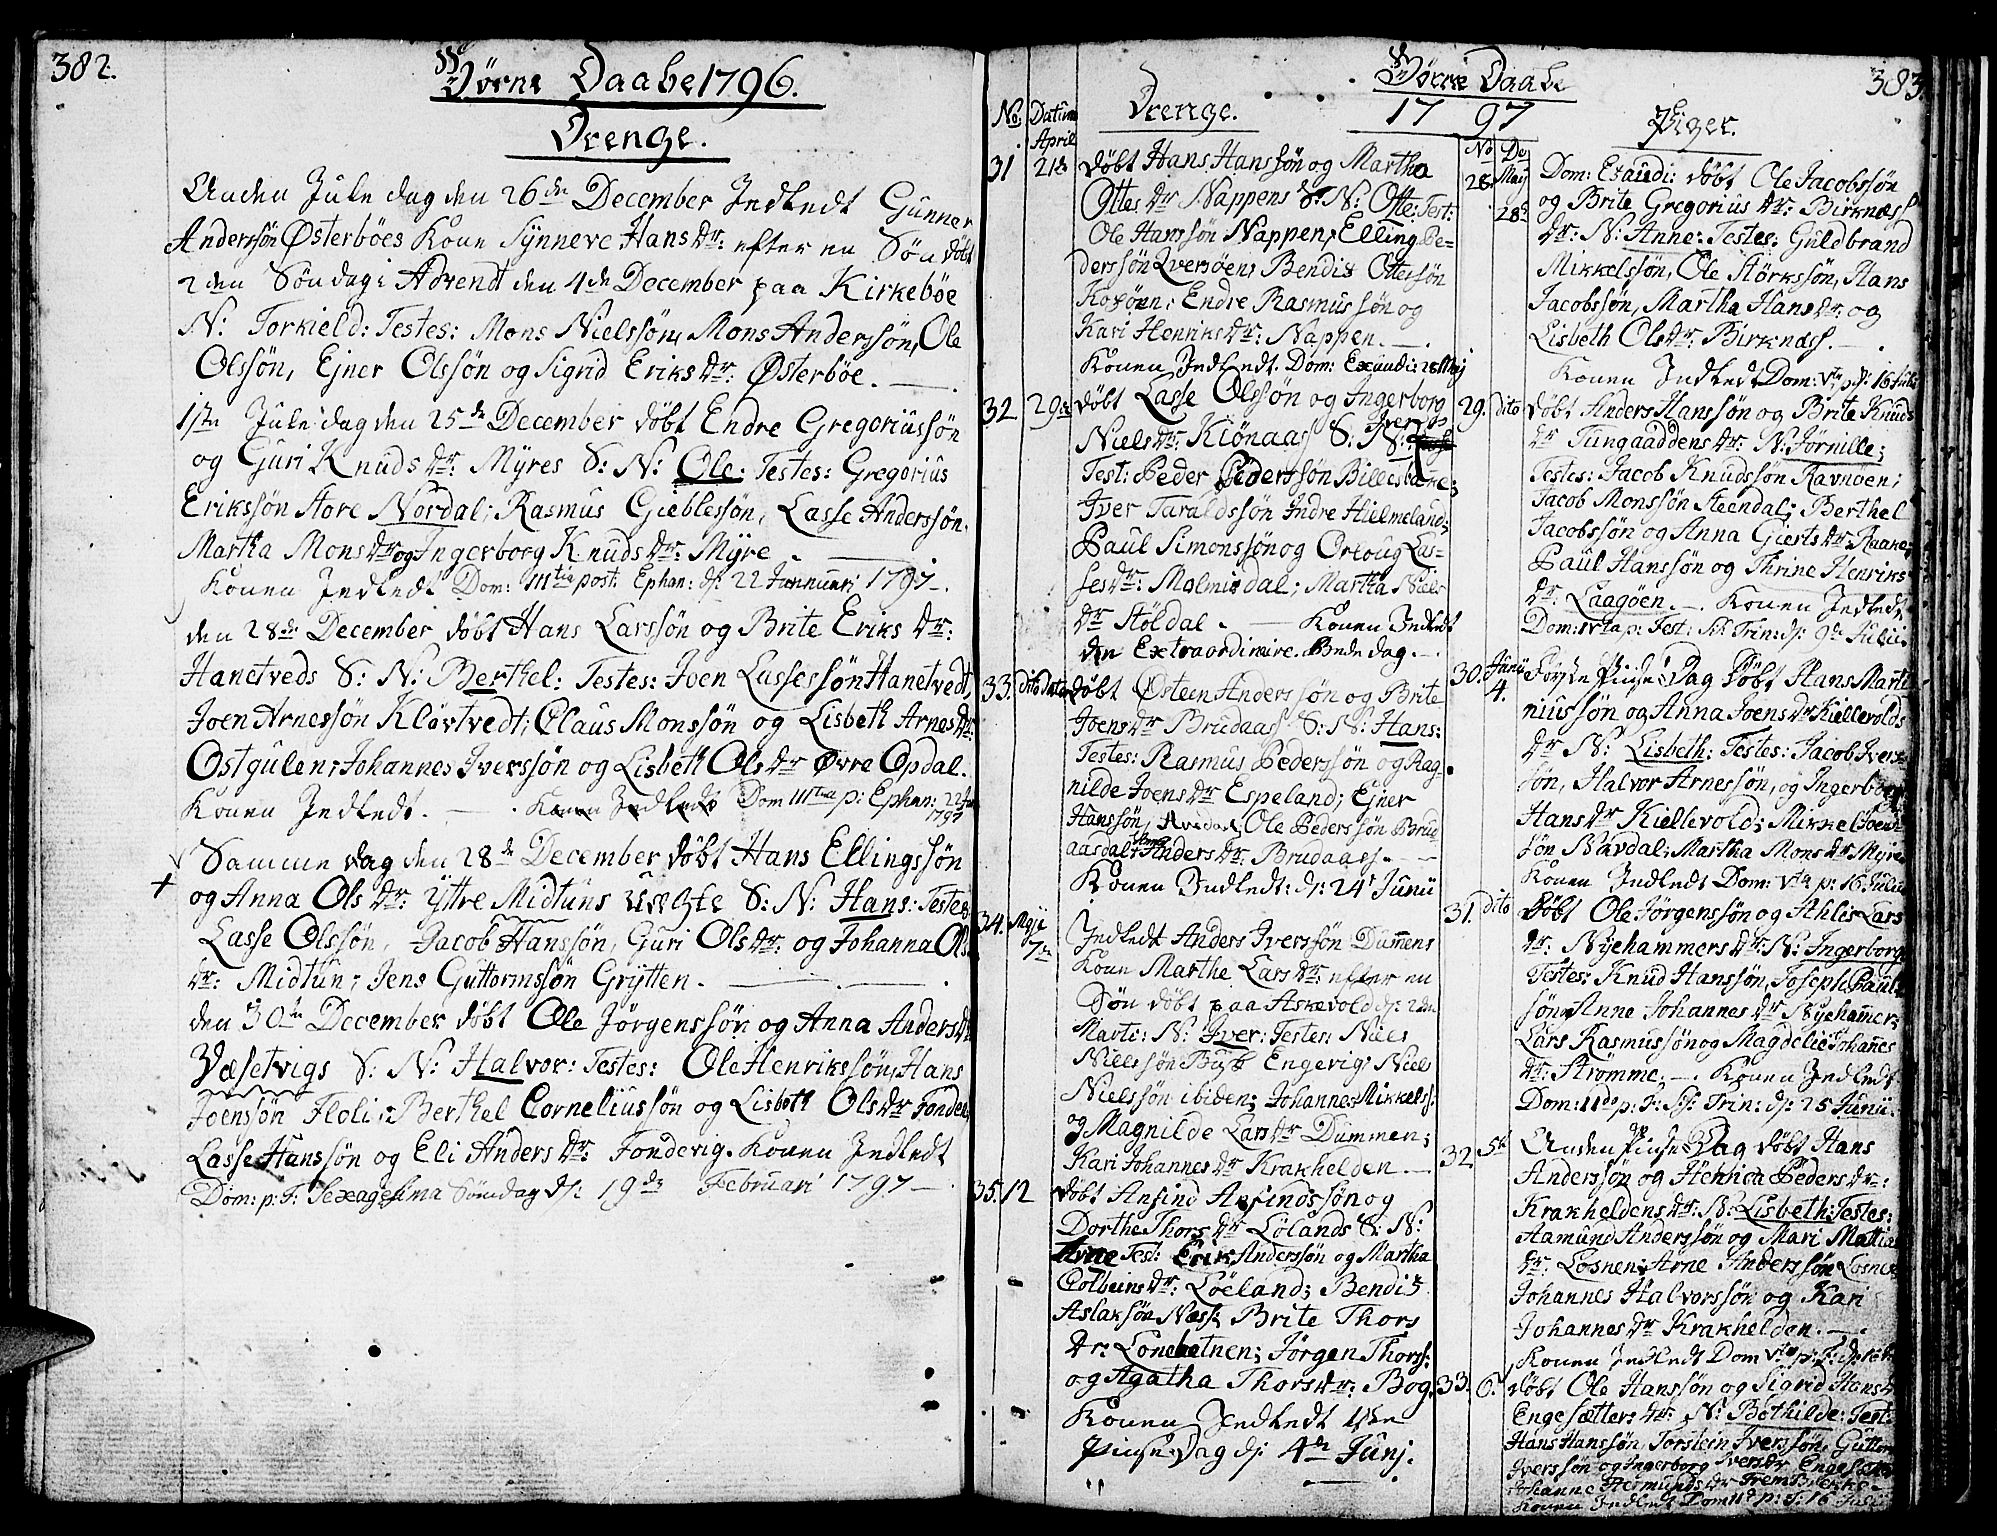 382.
Börne Daabe 1796.
Drenge.
Anden Jule dag den 26de December Indledt Gunner
Anderssön Østerböes Kone Synneve Hansdr: efter en Sön döbt
2den Söndag i Advendt den 4de December paa Kirkeböe
N: Torkield: Testes: Mons Nielssön, Mons Anderssön, Ole
Olssön, Ejner Olssön og Sigrid Eriksdr: Østerböe. —
1ste Jule dag den 25de December döbt Endre Gregoriussön
og Guri Knudsdr: Myres S: N: Ole: Testes: Gregorius
Erikssön Store Nordal; Rasmus Gieblessön, Lasse Anderssön.
Martha Monsdr og Ingerborg Knudsdr: Myre. —
Konen Indledt Dom: IIItia post Ephan: d: 22 Januari 1797.
den 28de December döbt Hans Larssön og Brite Eriks dr:
Hanetveds S: N: Berthel: Testes: Joen Lassessön Hanetvedt,
Joen Arnessön Klövtvedt; Claus Monssön og Lisbeth Arnesdr:
Ostgulen; Johannes Iverssön og Lisbeth Olsdr Øvre Opdal.
Konen Indledt. — Konen Indledt Dom IIItia p: Ephan: 22 Jan
1797
Samme dag den 28de December döbt Hans Ellingssön
og Anna Ols dr: Yttre Midtuns uægte S: N: Hans: Testes
Lasse Olssön, Jacob Hanssön, Guri Olsdr: og Johanna Ols
dr: Midtun; Jens Guttormssön Grytten. —
den 30de December döbt Ole Jörgenssön og Anna Andersdr
Væsetvigs S: N: Halvor: Testes: Ole Henrikssön, Hans
Joenssön Floli; Berthel Corneliussön og Lisbeth Olsdr Fonden
Lasse Hanssön og Eli Andersdr: Fondevig. Konen Indledt
Dom: p: F: Sexagesima Söndag d: 19de Februari 1797 —
383.
Börne Daabe
1797
No. Datum Drenge.
April
31 21de döbt Hans Hanssön og Martha
Ottesdr Nappens S: N: Otte: Test:
Ole Hanssön Nappen, Elling Pe-
derssön Qversöen; Bendix Ottessön
Endre Rasmussön og
Kari Henriksdr: Nappen. —
Konen Indledt. Dom: Exaudi: 28 Maj
32 29de döbt Lasse Olssön og Ingerborg
Nielsdr: Kiönaas S: N: Iver
Test: Peder Pederssön Billesbakke;
Iver Taraldssön Indre Hielmeland;
Paul Simonssön og Orloug Las-
sesdr: Molmisdal; Martha Niels
dr Stöldal. — Konen Indledt
den Extraordinaire Bededag. —
33. dito dato döbt Østen Anderssön og Brite
Joensdr Brudaas S: N: Hans:
Testes: Rasmus Pederssön og Rag-
nilde Joensdr Espeland; Ejner
Hanssön, Ole Pederssön Brud
aasdal; Anna Andersdr: Brudaas. —
Konen Indledt: d: 24 Junii
34. Maji
7de Indledt Anders Iverssön Dummens
Kone Marthe Larsdr: efter en
Sön döbt paa Askevold d: 2den
Marti: N: Iver: Testes: Niels
Nielssön Engevig; Niels
Nielssön ibidem; Johannes Mikkelss:
og Magnilde Larsdr Dummen;
Kari Johannesdr Krakhelden —
35. 12 döbt Anfind Anfindssön og
Dorthe Thorsdr Lölands S: N:
Arne Test: Erik Anderssön og Martha
Colbeinsdr: Löeland; Bendix
Aslaksön Næss; Brite Thors
dr: Lonebotnen; Jörgen Thorss:
og Agatha Thorsdr: Bog.
Konen Indledt 1ste
Pinse Dag d: 4de Junj.
No Do Piger.
28. Maij
28de Dom: Exaudi: döbt Ole Jacobssön
og Brite Gregorius dr: Birknæss
dr: N: Anne: Testes: Guldbrand
Mikkelssön, Ole Störkssön, Hans
Jacobssön, Martha Hansdr: og
Lisbeth Olsdr: Birknæss. —
Konen Indledt Dom: Vta p: d: 16 Juli
29. dito döbt Anders Hanssön og Brite Knuds
dr Tungaaddens dr: N: Jörnille;
Testes: Jacob Knudssön Ravnöen;
Jacob Monssön Steendal; Berthel
Jacobssön og Anna Giertsdr: Raake;
Paul Hanssön og Thrine Henriks
dr: Laagöen. — Konen Indledt
Dom: IVta p: Fest: SS Trin: d: 9de Julii
30. Junii
4. Förste Pinse Dag döbt Hans Marti
niussön og Anna Joensdr Kiellevolds
dr N: Lisbeth: Testes: Jacob Ivers
sön, Halvor Arnessön, og Ingerborg
Hansdr Kiellevold; Mikkel Joens
sön Bavdal; Martha Monsdr Myre
Konen Indledt Dom: Vta p: 16 Julii
31. dito Döbt Ole Jörgenssön og Ahlis Lars
dr: Nyehammers dr: N: Ingerborg
Testes: Knud Hanssön, Joseph Paul
sön, Anne Johannesdr Nyehammer;
Lars Rasmussön og Magdelie Johannes
dr: Strömme; — Konen Indledt
Dom: IIda p: F: SS: Trin: d: 25 Junii.
32. 5te Anden Pinse Dag döbt Hans
Anderssön og Hennica Peders dr:
Krakheldens dr: N: Lisbeth: Testes:
Aamund Anderssön og Mari Mattia
dr: Losnen; Arne Anderssön Losnen
Johannes Halvorssön og Kari
Johannesdr Krakhelden. —
Konen Indledt Dom Vta p: F: d: 16
33. 6. döbt Ole Hanssön og Sigrid Hansdr
Engesætters dr: N: Bothilde: Test:
Hans Hanssön, Torstein Iverssön, Guttorm
Iverssön og Ingerborg Iversdr Engesætter
Johanne Asmundsdr Frembrekke —
Konen Indledt Dom p: F: 16 Julii